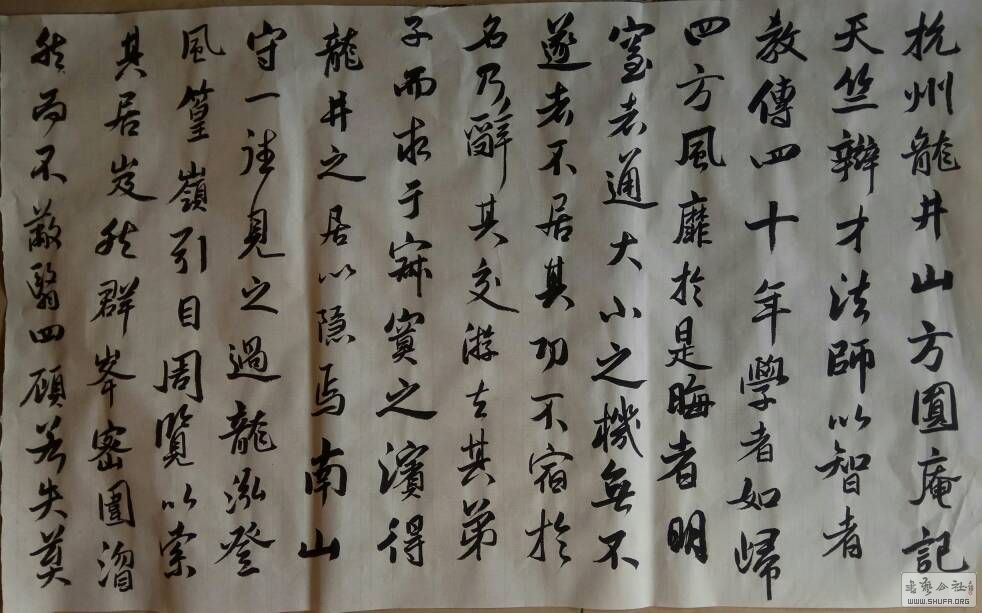 杭州龍井山方圓庵記
天竺辯才法師以智者
教傳四十年學者如歸
四方風靡於是晦者明
窒者通大小之機無不
遂者不居其功不宿於
名乃辭其交游去其弟
子而求于寂寞之濱得
龍井之居以隱焉南山
守一往見之過龍泓登
風篁嶺引目周覽以索
其居岌然群峯密圍溜
然而不蔽翳四顧若失莫
书艺公社
WWW.SHUFA.ORG